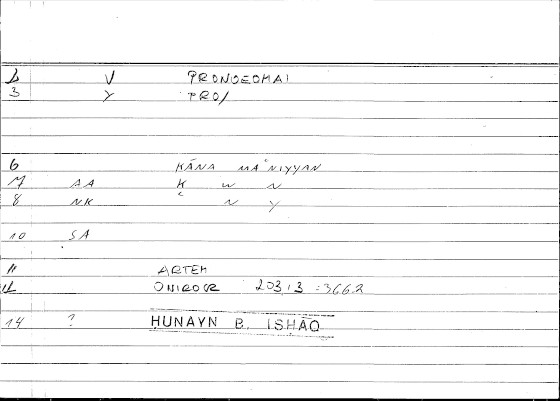 V PRONOEOMAI
3 Y PRO/
6 KĀNA MAʿNIYYAN
7 AA K W N
8 NK ʿ N Y
10 SA
11 ARTEM
ONIROCR 203,3 = 366,2
14 ? HUNAYN B. ISHĀQ